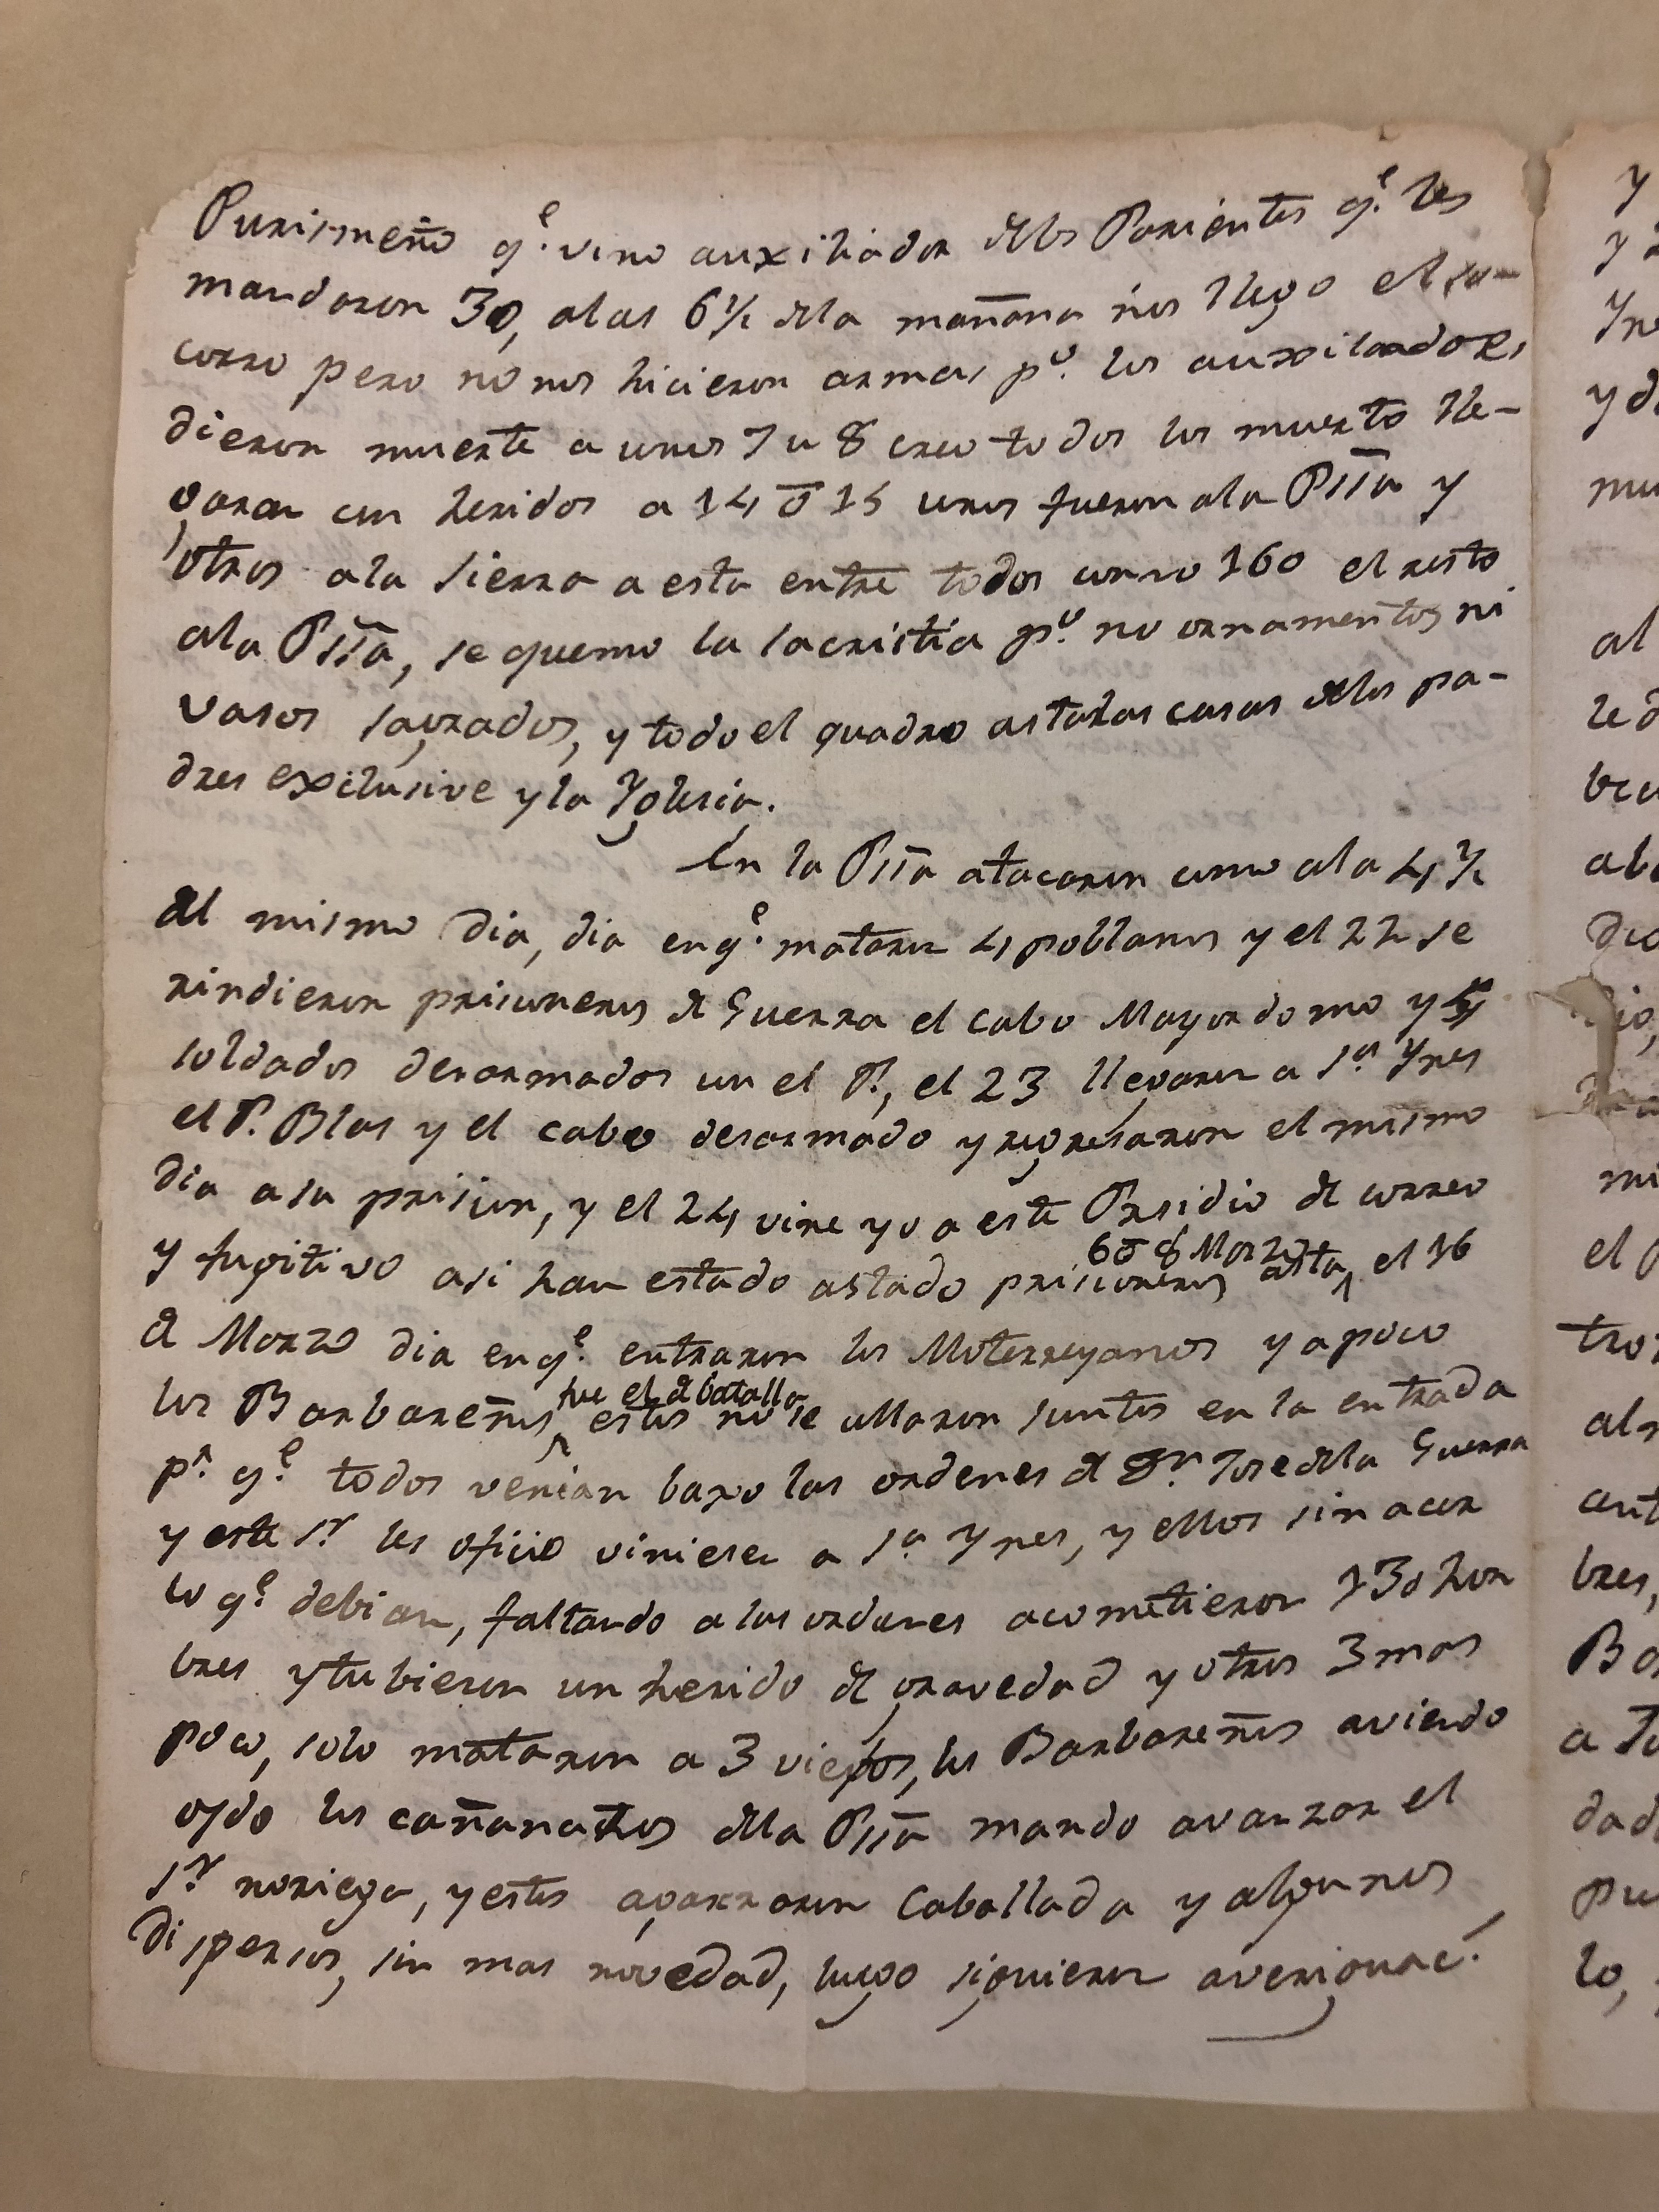 Purismeño q.e vino auxiliador dlos Parientes q.e les
mandaron 30, alas 6 1/2 dla mañana nos llego el so-
corro pero no nos hicieron armas p.o los auxiliadores
dieron muerte a unos 7 u 8 creo todos los muerto lle-
garan con heridos a 14 ō 15 unos fueron ala Pssā y
otros ala sierra a esta entre todos como 160 el resto
ala Pssā, se quemo la sacristia p.o no ornamentos ni
vasos sagrados, y todo el quadro asta las casas dlos pa-
dres exclusive y la Yglesia.
En la Pssā atacaron como ala 4 1/2
dl mismo dia, dia en q.e mataron 4 poblanos y el 22 se
rindieron prisioneros d Guerra el cabo Mayordomo y
soldados desarmados con el P., el 23 llevaron a S.a Ynes
el P. Blas y el cabo desarmado y regresaron el mismo
dia a su prision, y el 24 vine yo a este Presidio d correo
6 ō 8 Marzo
y fugitivo asi han estado astado prisioneros asta el 16
d Marzo dia en q.e entraron los Moterreyanos y apoco
fue el d batalla
los Barbareños estos no se allaron juntos en la entrada
p.a q.e todos venian baxo las ordenes d D.n Jose dla Guerra
y este S.r les oficio viniesen a S.a Ynes, y ellos sin acer
lo q.e debian, faltando a las ordenes acometieron 130 hom
bres y tubieron un herido d gravedad y otros 3 mas
poco, solo mataron a 3 viejos, los Barbareños aviendo
oydo los cañonazos dla Pssā mando avanzar el
S.r noriega, y estos agarraron Caballada y algunos
dispersos, sin mas novedad, luego siguieron averiguac.